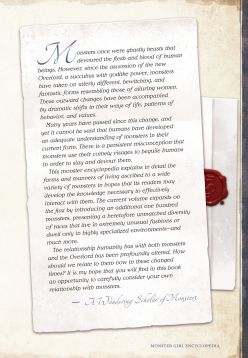 Monsters once were ghastly beasts that
devoured the flesh and blood of human
beings. However, since the ascension of the new
Overlord, a succubus with godlike power, monsters
have taken on utterly different, bewitching, and
fantastic forms resembling those of alluring women.
These outward changes have been accompanied
by dramatic shifts in their ways of life, patterns of
behavior, and values.
Many years have passed since this change, and
yet it cannot be said that humans have developed
an adequate understanding of monsters in their
current form. There is a persistent misconception that
monsters use their comely visages to beguile humans
in order to slay and devour them.
This monster encyclopedia explains in detail the
forms and manners of living ascribed to a wide
variety of monsters in hopes that its readers may
develop the knowledge necessary to effectively
interact with them. The current volume expands on
the first by introducing an additional one hundred
monsters, presenting a heretofore unmatched diversity
of races that live in extremely unusual fashions or
dwell only in highly specialized environments—and
much more.
The relationship humanity has with both monsters
and the Overlord has been profoundly altered. How
should we relate to them now in these changed
times? It is my hope that you will find in this book
an opportunity to carefully consider your own
relationship with monsters.
— A Wandering Scholar of Monsters
MONSTER GIRL ENCYCLOPEDIA